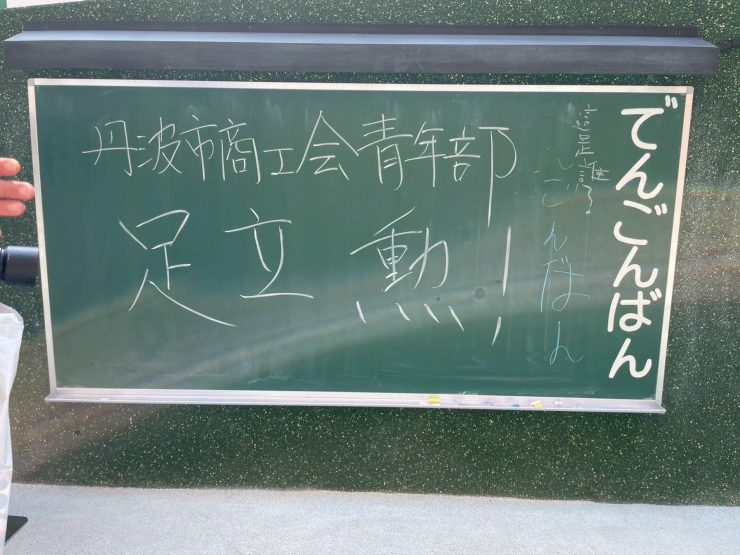 でんごんばん
ごんばん
丹波市商工会青年部
足立 勲!